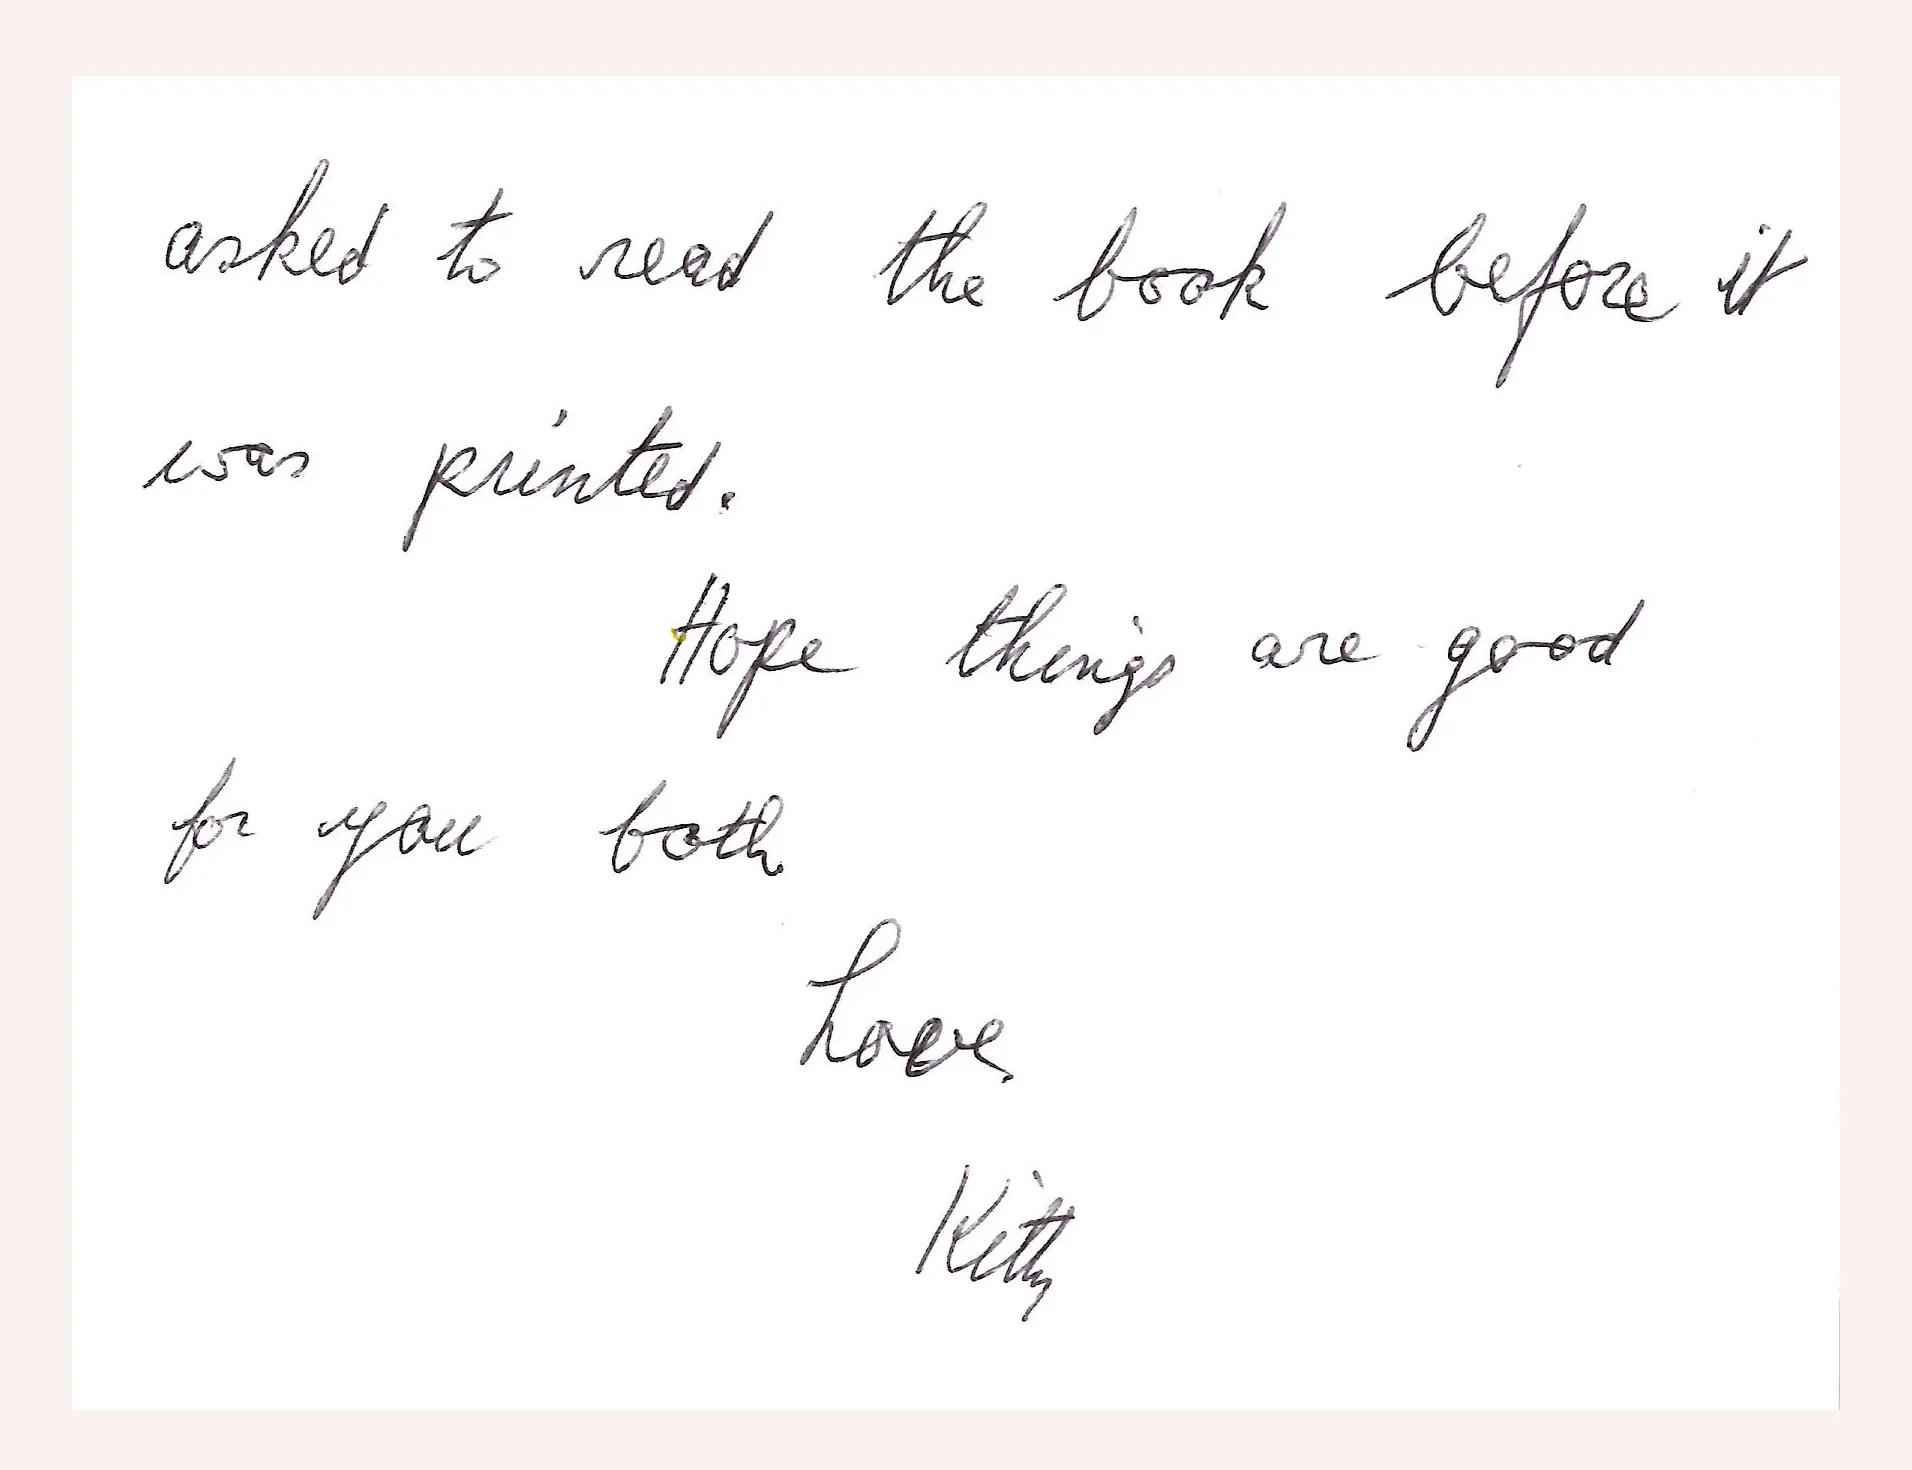 asked to read the book before it
was printed.
Hope things are good
for you both
Love
Kitty